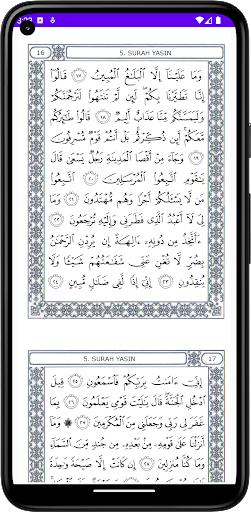 16
5. SURAH YASIN
وَمَا عَلَيْنَآ إِلَّا ٱلْبَلَٰغُ ٱلْمُبِينُ ١٧ قَالُوٓا۟
إِنَّا تَطَيَّرْنَا بِكُمْ لَئِن لَّمْ تَنتَهُوا۟ لَنَرْجُمَنَّكُمْ
وَلَيَمَسَّنَّكُم مِّنَّا عَذَابٌ أَلِيمٌ ١٨ قَالُوا۟ طَٰٓئِرُكُم
مَّعَكُمْ أَئِن ذُكِّرْتُم بَلْ أَنتُمْ قَوْمٌ مُّسْرِفُونَ
١٩ وَجَآءَ مِنْ أَقْصَا ٱلْمَدِينَةِ رَجُلٌ يَسْعَىٰ قَالَ
يَٰقَوْمِ ٱتَّبِعُوا۟ ٱلْمُرْسَلِينَ ٢٠ ٱتَّبِعُوا۟
مَن لَّا يَسْـَٔلُكُمْ أَجْرًا وَهُم مُّهْتَدُونَ ٢١ وَمَا
لِىَ لَآ أَعْبُدُ ٱلَّذِى فَطَرَنِى وَإِلَيْهِ تُرْجَعُونَ ٢٢
ءَأَتَّخِذُ مِن دُونِهِۦٓ ءَالِهَةً إِن يُرِدْنِ ٱلرَّحْمَٰنُ
بِضُرٍّ لَّا تُغْنِ عَنِّى شَفَٰعَتُهُمْ شَيْـًٔا وَلَا
يُنقِذُونِ ٢٣ إِنِّىٓ إِذًا لَّفِى ضَلَٰلٍ مُّبِينٍ ٢٤
5. SURAH YASIN
17
إِنِّىٓ ءَامَنتُ بِرَبِّكُمْ فَٱسْمَعُونِ ٢٥ قِيلَ
ٱدْخُلِ ٱلْجَنَّةَ قَالَ يَٰلَيْتَ قَوْمِى يَعْلَمُونَ ٢٦ بِمَا
غَفَرَ لِى رَبِّى وَجَعَلَنِى مِنَ ٱلْمُكْرَمِينَ ٢٧ ۞ وَمَآ
أَنزَلْنَا عَلَىٰ قَوْمِهِۦ مِنۢ بَعْدِهِۦ مِن جُندٍ مِّنَ ٱلسَّمَآءِ
وَمَا كُنَّا مُنزِلِينَ ٢٨ إِن كَانَتْ إِلَّا صَيْحَةً وَٰحِدَةً